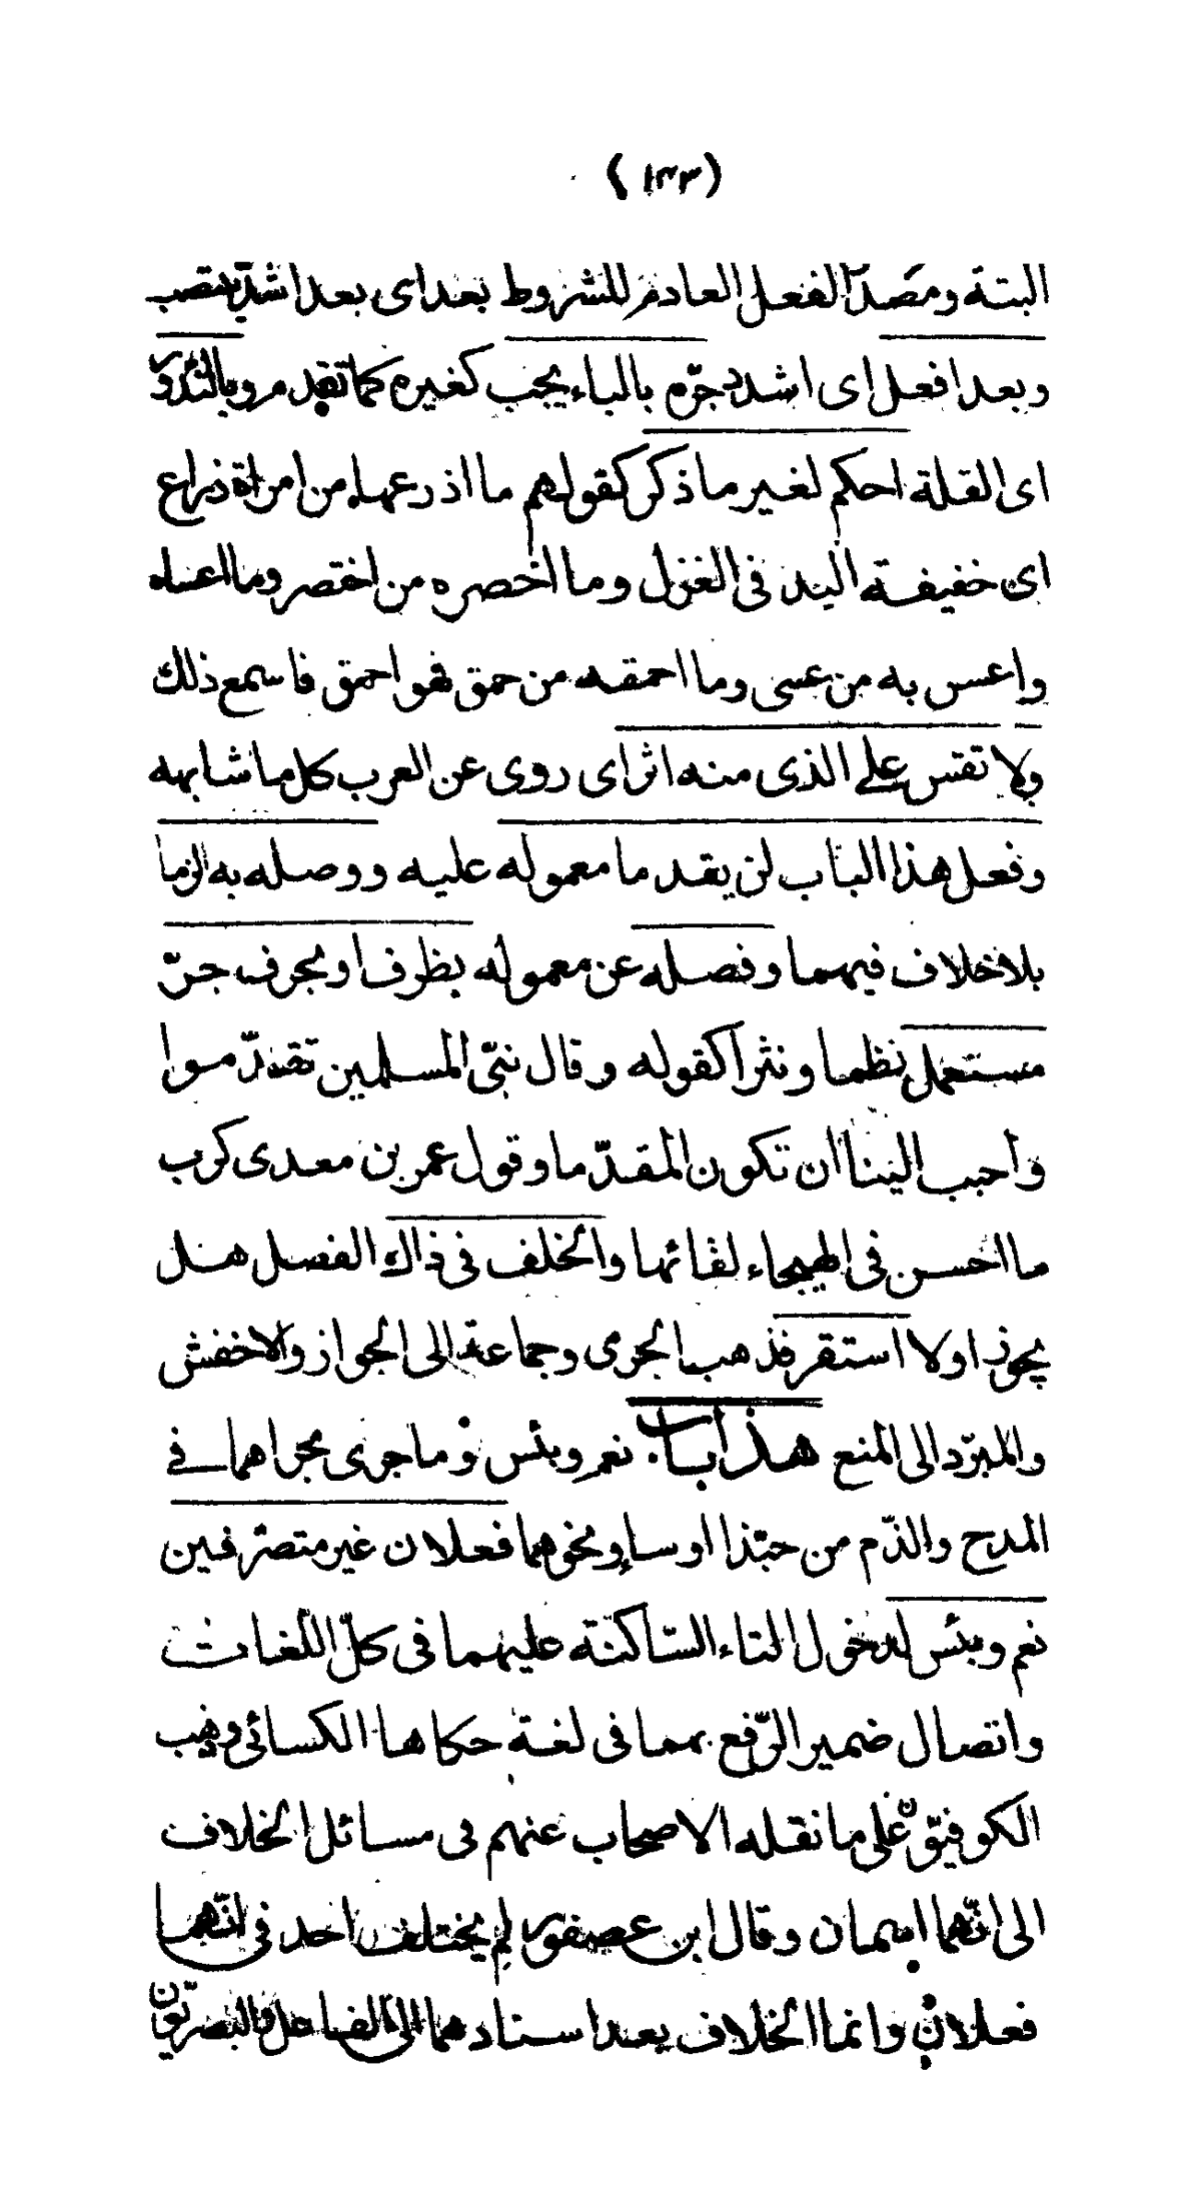 (١٣٣)
البتة ومصدر الفعل العادم للشروط بعد اى بعد اشد ينتصب
وبعد افعل اى اشدد جرّه بالباء يجب كغيره كما تقدم وبالندور
اى القلة احكم لغير ما ذكر كقولهم ما اذرعها من امراة ذراع
اى خفيفة اليد فى الغزل وما اخصره من اختصر وما اعساه
واعس به من عسى وما احمقه من حمق فهو احمق فاسمع ذلك
ولا تقس على الذى منه اثر اى روى عن العرب كل ما شابهه
وفعل هذا الباب لن يقدما معموله عليه ووصله به الزما
بلا خلاف فيهما وفصله عن معموله بظرف او بحرف جرّ
مستعمل نظما ونثرا كقوله وقال نبىّ المسلمين تقدّموا
واحبب الينا ان تكون المقدّما وقول عمر بن معدى كرب
ما احسن فى الهيجاء لقائها والخلف فى ذاك الفصل هل
يجوز اولا استقر فذهب الجرمى وجماعة الى الجواز والاخفش
والمبرّد الى المنع هذا باب نعم وبئس وما جرى مجراهما فى
المدح والذّم من حبّذا او ساء ونحوهما فعلان غير متصرّفين
نعم وبئس لدخول التاء السّاكنة عليهما فى كلّ اللّغات
واتصال ضمير الرّفع بهما فى لغة حكاها الكسائى وذهب
الكوفيّون على ما نقله الاصحاب عنهم فى مسائل الخلاف
الى انّهما اسمان وقال ابن عصفور لم يختلف احد فى انّهما
فعلان وانما الخلاف بعد اسنادهما الى الفاعل فالبصريّون